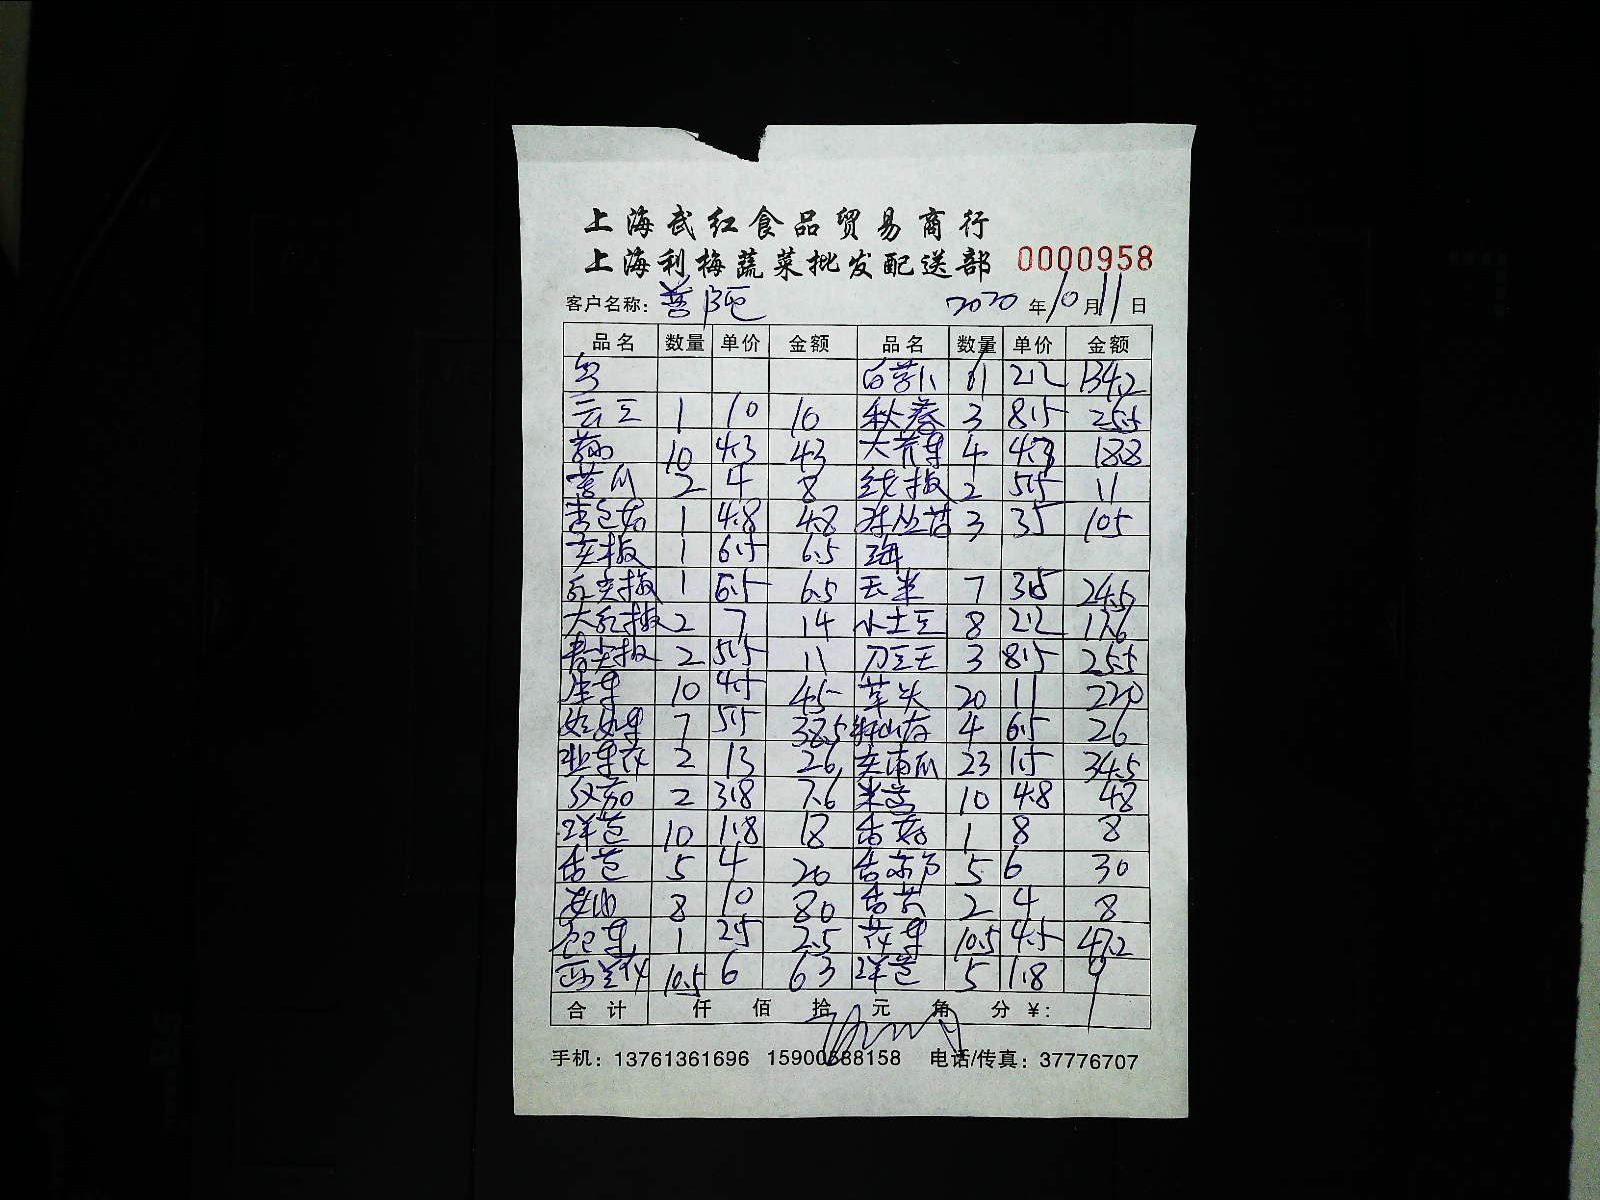 上海武红食品贸易商行
上海利梅蔬菜批发配送部 0000958
客户名称: 2020年10月11日
品名 数量 单价 金额 品名 数量 单价 金额
61 2.2 134.2
云豆 1 10 10 秋葵 3 8.5 25.5
10 4.3 43 4 4.7 18.8
黄瓜 2 4 8 线椒 2 5.5 11
1 4.8 4.8 3 35 105
尖椒 1 6.5 6.5
红尖椒 1 6.5 6.5 玉米 7 3.5 24.5
大红椒 2 7 14 小土豆 8 2.2 17.6
青尖椒 2 5.5 11 刀豆王 3 8.5 25.5
生菜 10 4.5 45 草头 20 11 220
7 5.5 38.5 4 6.5 26
2 13 26 南瓜 23 1.5 34.5
2 3.8 7.6 米苋 10 4.8 48
洋芭 10 1.8 18 香菇 1 8 8
香芭 5 4 20 5 6 30
8 10 80 香芹 2 4 8
包菜 1 2.5 2.5 花菜 10.5 4.5 47.2
西兰花 10.5 6 63 洋芭 5 1.8 9
合计 仟 佰 拾 元 角 分 ¥:
手机: 13761361696 15900588158 电话/传真: 37776707